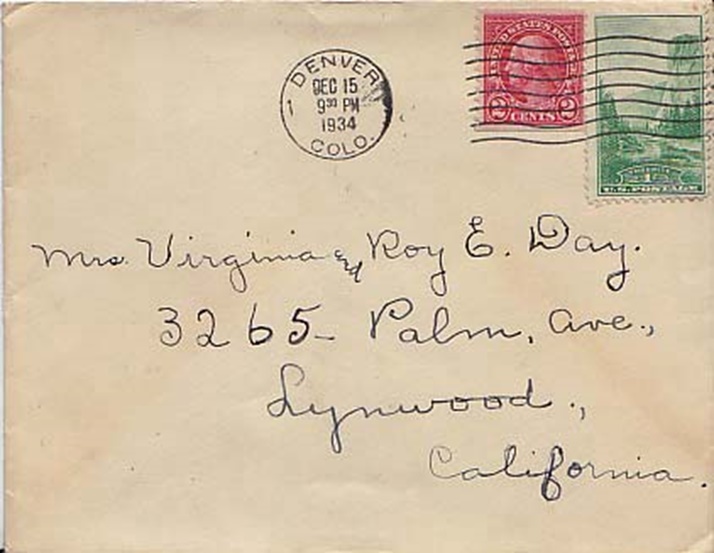 DENVER
DEC 15
9 30 PM
1934
COLO.
1
UNITED STATES POSTAGE
2 CENTS 2
1
U.S. POSTAGE
Mrs. Virginia and Roy E. Day.
3265- Palm, Ave.,
Lynwood.,
California.